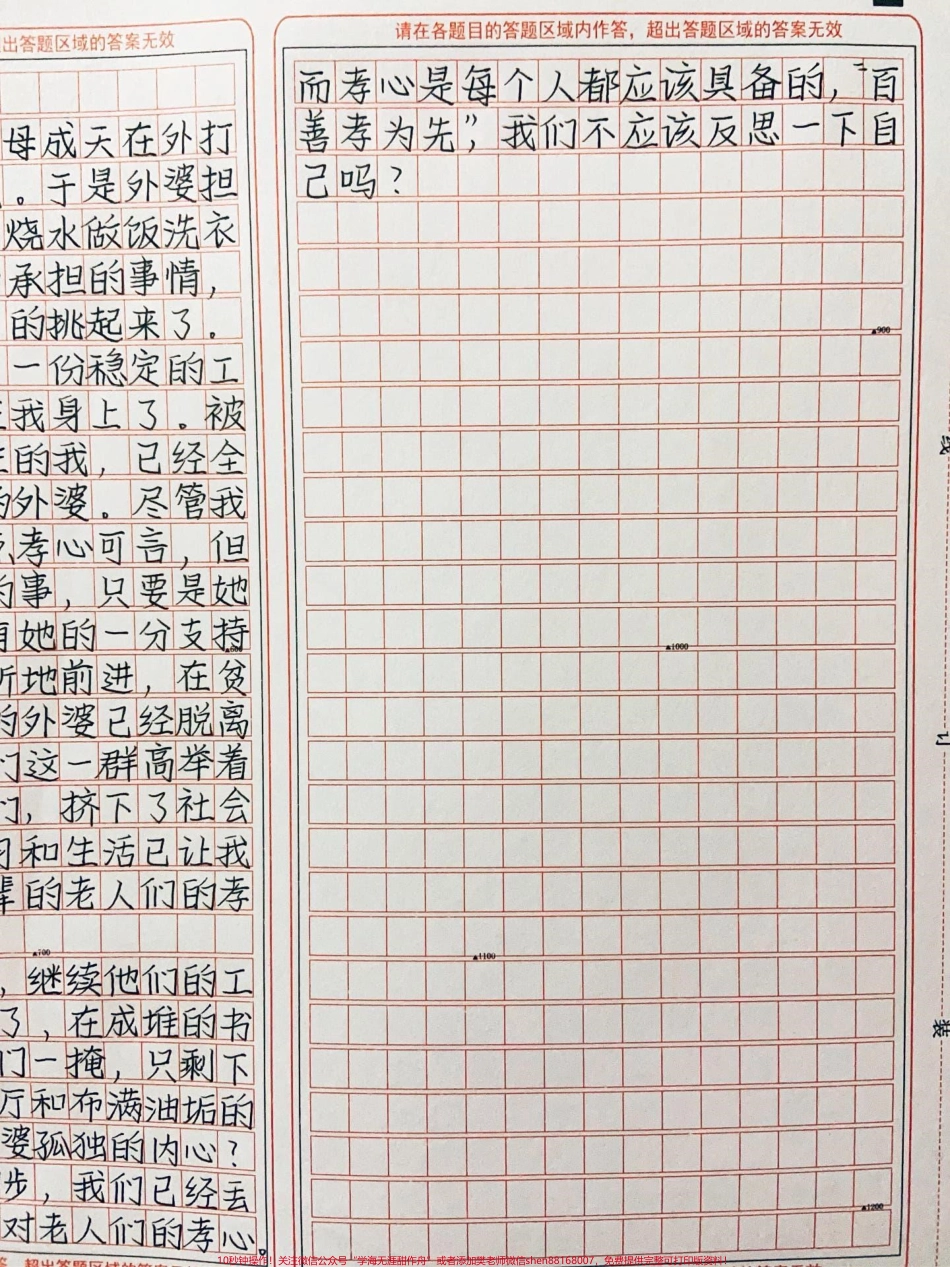 出答题区域的答案无效
母成天在外打
。于是外婆担
烧水做饭洗衣
承担的事情，
的挑起来了。
一份稳定的工
我身上了。被
的我，已经全
的外婆。尽管我
孝心可言，但
的事，只要是她
有她的一分支持
▲600
断地前进，在贫
的外婆已经脱离
们这一群高举着
们，挤下了社会
习和生活已让我
辈的老人们的孝
▲700
，继续他们的工
了，在成堆的书
门一掩，只剩下
厅和布满油垢的
婆孤独的内心？
步，我们已经丢
对老人们的孝心。
请在各题目的答题区域内作答，超出答题区域的答案无效
而孝心是每个人都应该具备的，“百
善孝为先”，我们不应该反思一下自
己吗？
▲900
▲1000
▲1100
▲1200
线
订
装
10秒钟操作！关注微信公众号“学海无涯甜作舟”或者添加樊老师微信shen88168007，免费提供完整可打印版资料！